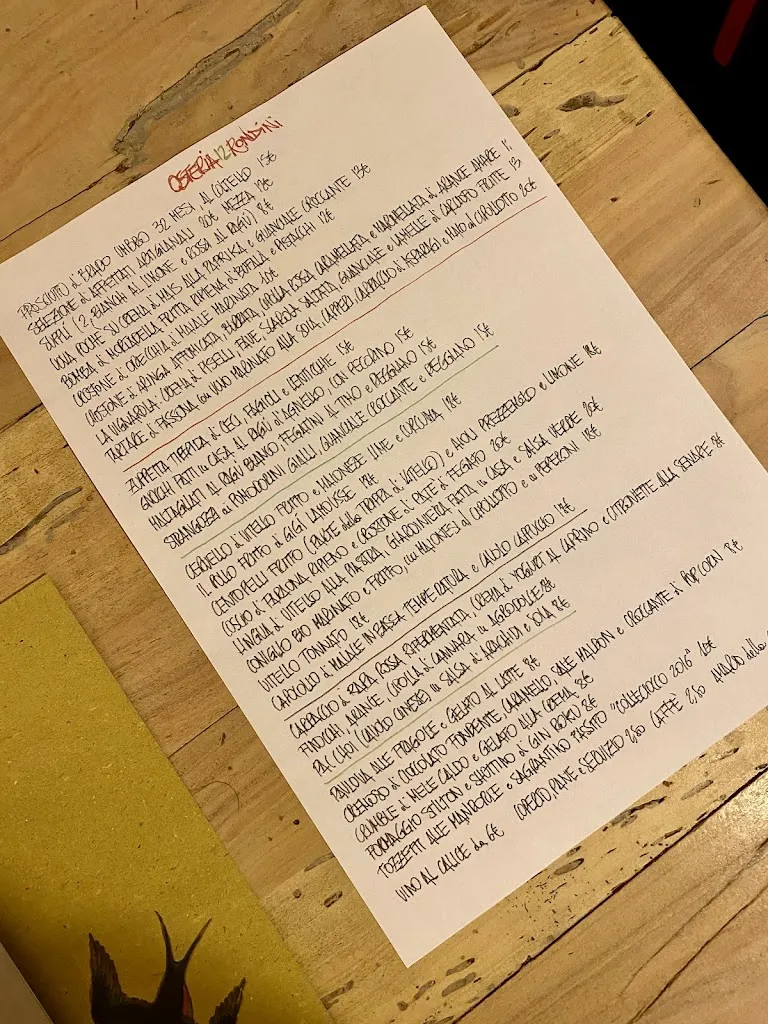 OSTERIA 12 RONDINI
PROSCIUTTO d' BRADO UMBRO 32 MESI AL COLTELLO 15€
SELEZIONE d' AFFETTATI ARTIGIANALI 20€ MEZZA 12€
SUPPLÍ (2, BIANCHI AL LIMONE e ROSSI AL RAGÙ) 8€
UOVA POCHÉ SU CREMA d' MAIS ALLA PAPRIKA e GUANCIALE CROCCANTE 13€
BOMBA d' MORTADELLA FRITTA RIPIENA d' BUFALA e PISTACCHI 12€
CROSTONE d' ORECCHIA d' MAIALE MARINATA 10€
CROSTONE d' ARINGA AFFUMICATA, BURRATA, CIPOLLA ROSSA CARAMELLATA e MARMELLATA d' ARANCE AMARE
LA VIGNAROLA: CREMA d' PISELLI, FAVE, SCAROLA SALTATA, GUANCIALE e LAMELLE d' CARCIOFO FRITTE 13
TARTARE d' FASSONA con UOVO MARINATO ALLA SOIA, CAPPERI, CARPACCIO d' ASPARAGI e MAIO al CIPOLLOTTO 20€
ZUPPETTA TIEPIDA d' CECI, FAGIOLI e LENTICCHIE 15€
GNOCCHI FATTI in CASA AL RAGÙ d' AGNELLO, CON PECORINO 15€
MALTAGLIATI AL RAGÙ BIANCO, FEGATINI AL TIMO e REGGIANO 15€
STRANGOZZI ai POMODORINI GIALLI, GUANCIALE CROCCANTE e REGGIANO 15€
CERVELLO d' VITELLO FRITTO e MAIONESE LIME e CURCUMA 18€
IL POLLO FRITTO d' GIGI LANOUSSE 18€
CENTOPELLI FRITTO (PARTE della TRIPPA d' VITELLO) e AIOLI PREZZEMOLO e LIMONE 18€
COSCIO d' FARAONA RIPIENO e CROSTONE d' PATÉ d' FEGATO 20€
LINGUA d' VITELLO ALLA PIASTRA, GIARDINIERA FATTA in CASA e SALSA VERDE 20€
CONIGLIO BIO MARINATO e FRITTO, con MAIONESI al CIPOLLOTTO e ai PEPERONI 18€
VITELLO TONNATO 18€
CAPOCOLLO d' MAIALE IN BASSA TEMPERATURA e CAVOLO CAPPUCCIO 17€
CARPACCIO d' RAPA ROSSA RIFERMENTATA, CREMA d' YOGURT AL CAPRINO e CITRONETTE ALLA SENAPE 8€
FINOCCHI, ARANCE, CIPOLLA d' CANNARA in AGRODOLCE 8€
PAK CHOI (CAVOLO CINESE) in SALSA d' ARACHIDI e SOIA 8€
PAVLOVA ALLE FRAGOLE e GELATO AL LATTE 8€
CREMOSO d' CIOCCOLATO FONDENTE, CARAMELLO, SALE MALDON e CROCCANTE d' POP CORN 8€
CRUMBLE d' MELE CALDO e GELATO ALLA CREMA 8€
FORMAGGIO STILTON e SHOTTINO d' GIN ROKU 8€
TOZZETTI ALLE MANDORLE e SAGRANTINO PASSITO "COLLECIOCCO 2016" 10€
VINO AL CALICE da 6€ COPERTO, PANE e SERVIZIO 2,50 CAFFÈ 2,50 AMARO della